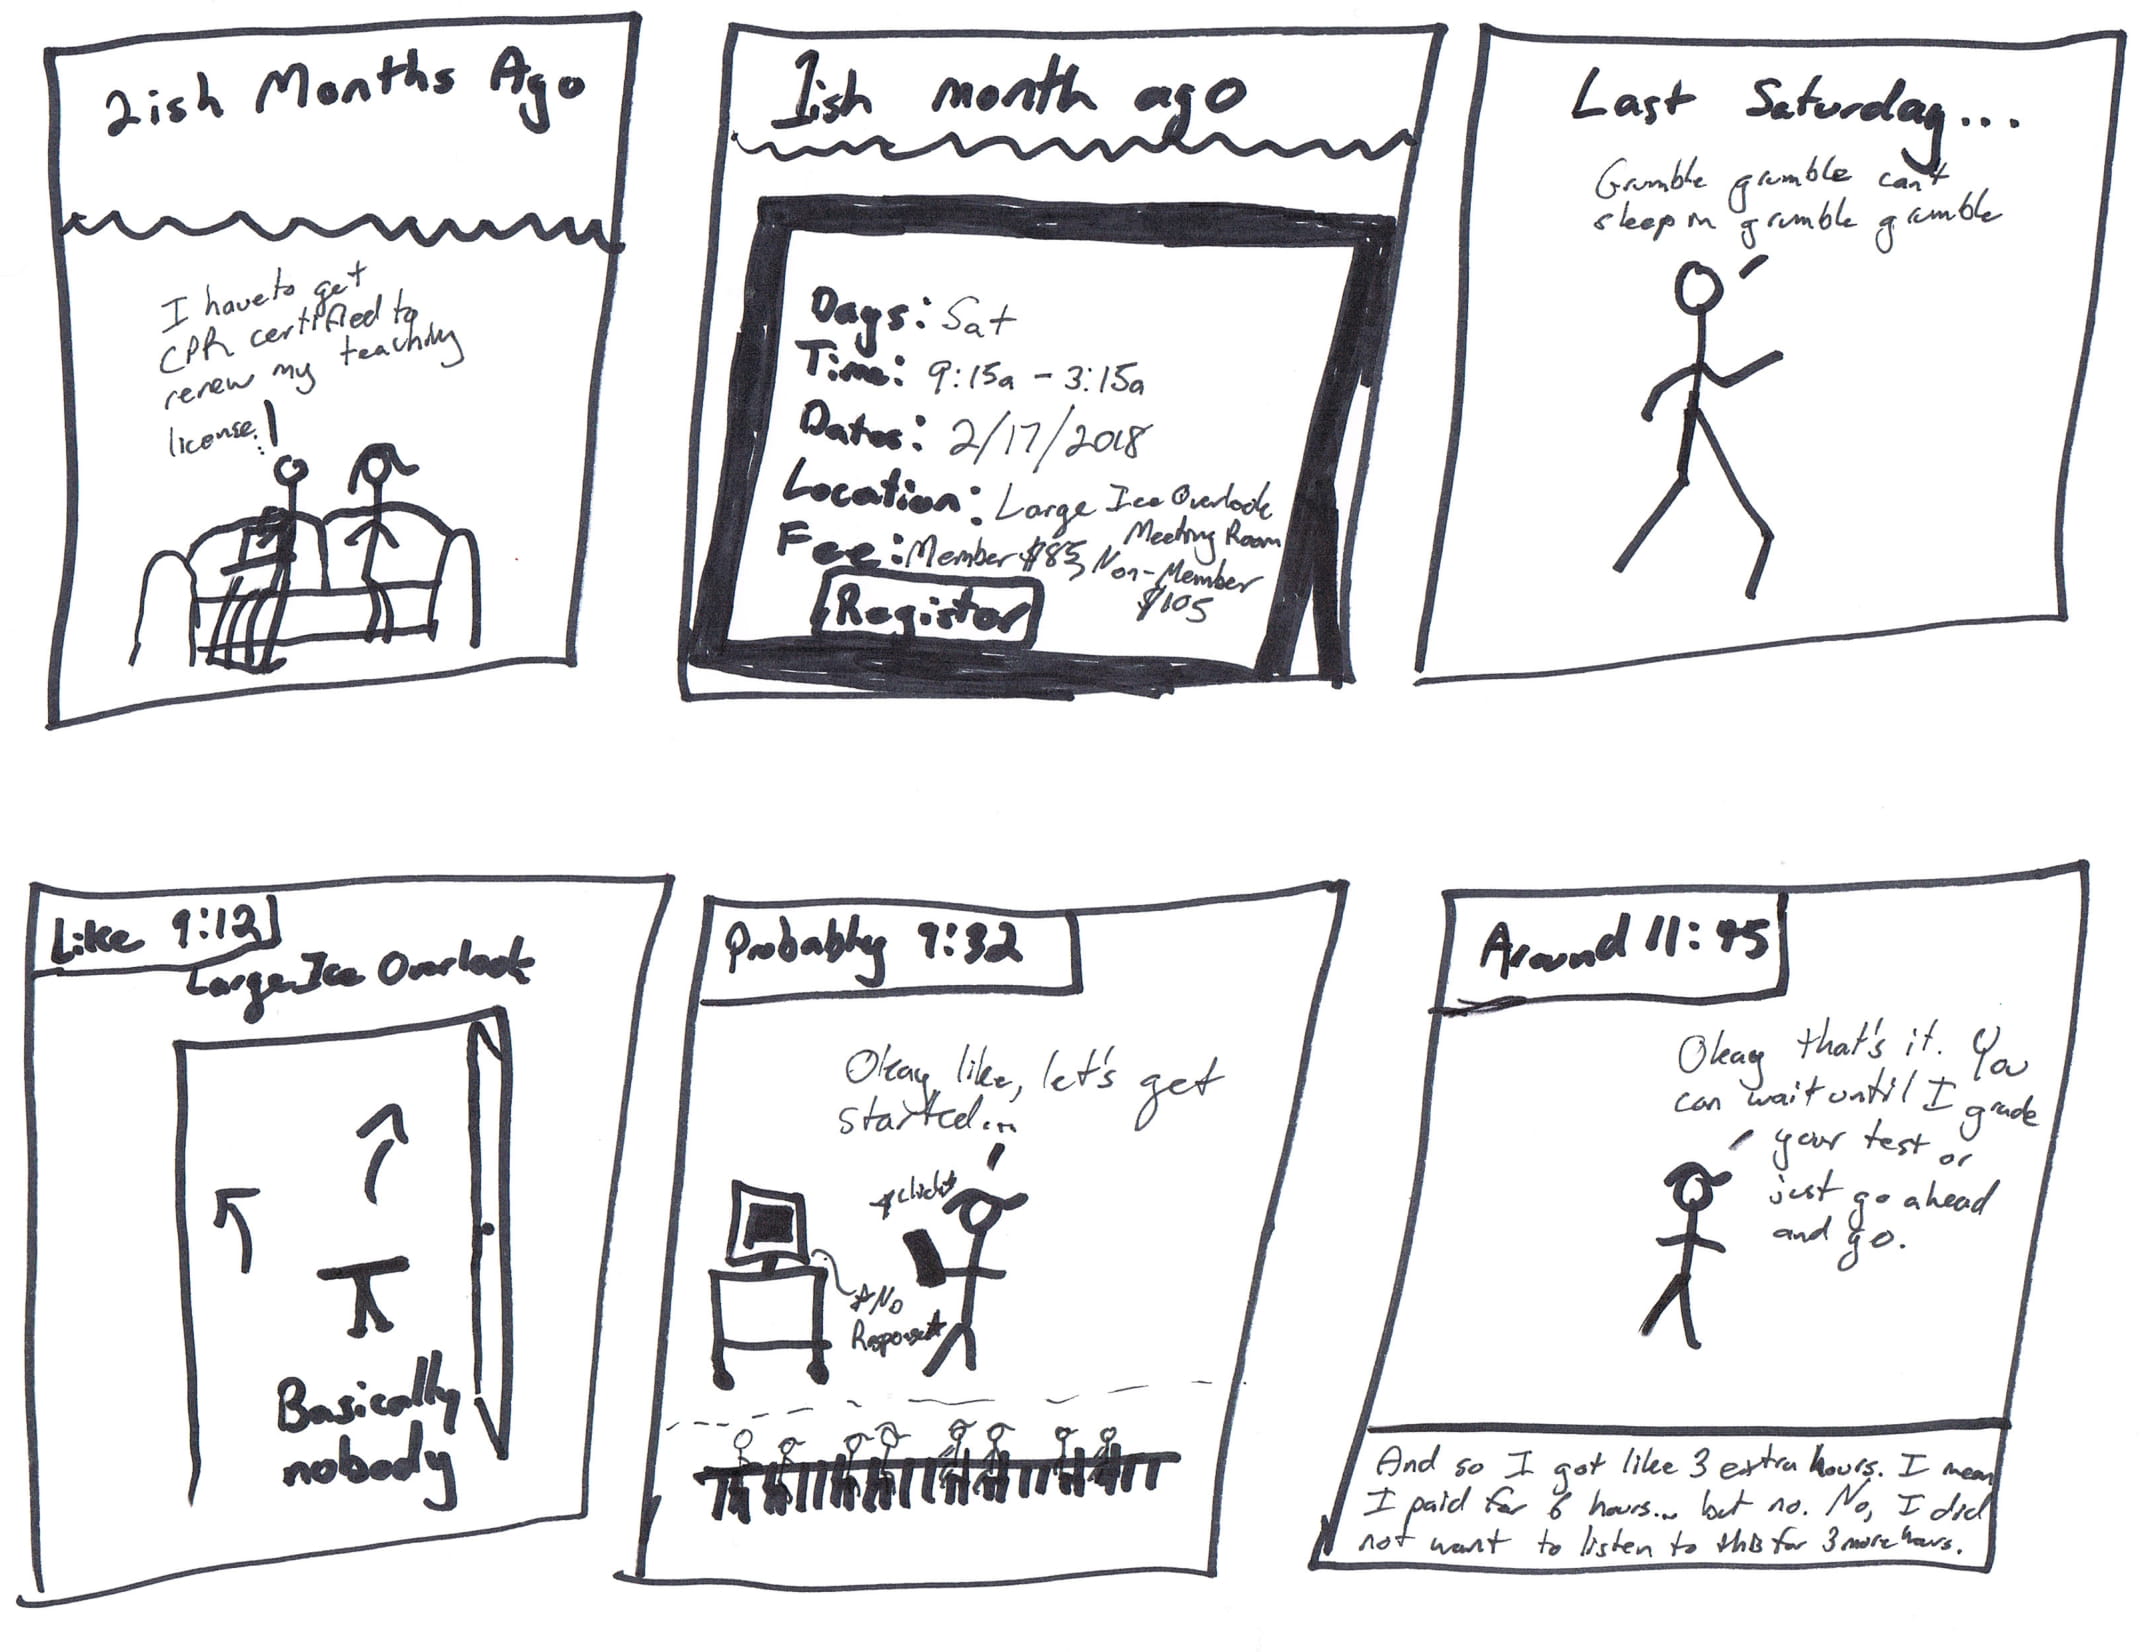 2ish Months Ago
I have to get
CPR certified to
renew my teaching
license.
1ish month ago
Days: Sat
Time: 9:15a - 3:15a
Dates: 2/17/2018
Location: Large Ice Overlook
Meeting Room
Fee: Member $85 Non-Member
$105
Register
Last Saturday...
Grumble grumble can't
sleep in grumble grumble
Like 9:12
Large Ice Overlook
Basically
nobody
Probably 9:32
Okay like, let's get
started...
*click*
*No
Response*
Around 11:45
Okay that's it. You
can wait until I grade
your test or
just go ahead
and go.
And so I got like 3 extra hours. I mean
I paid for 6 hours... but no. No, I did
not want to listen to this for 3 more hours.